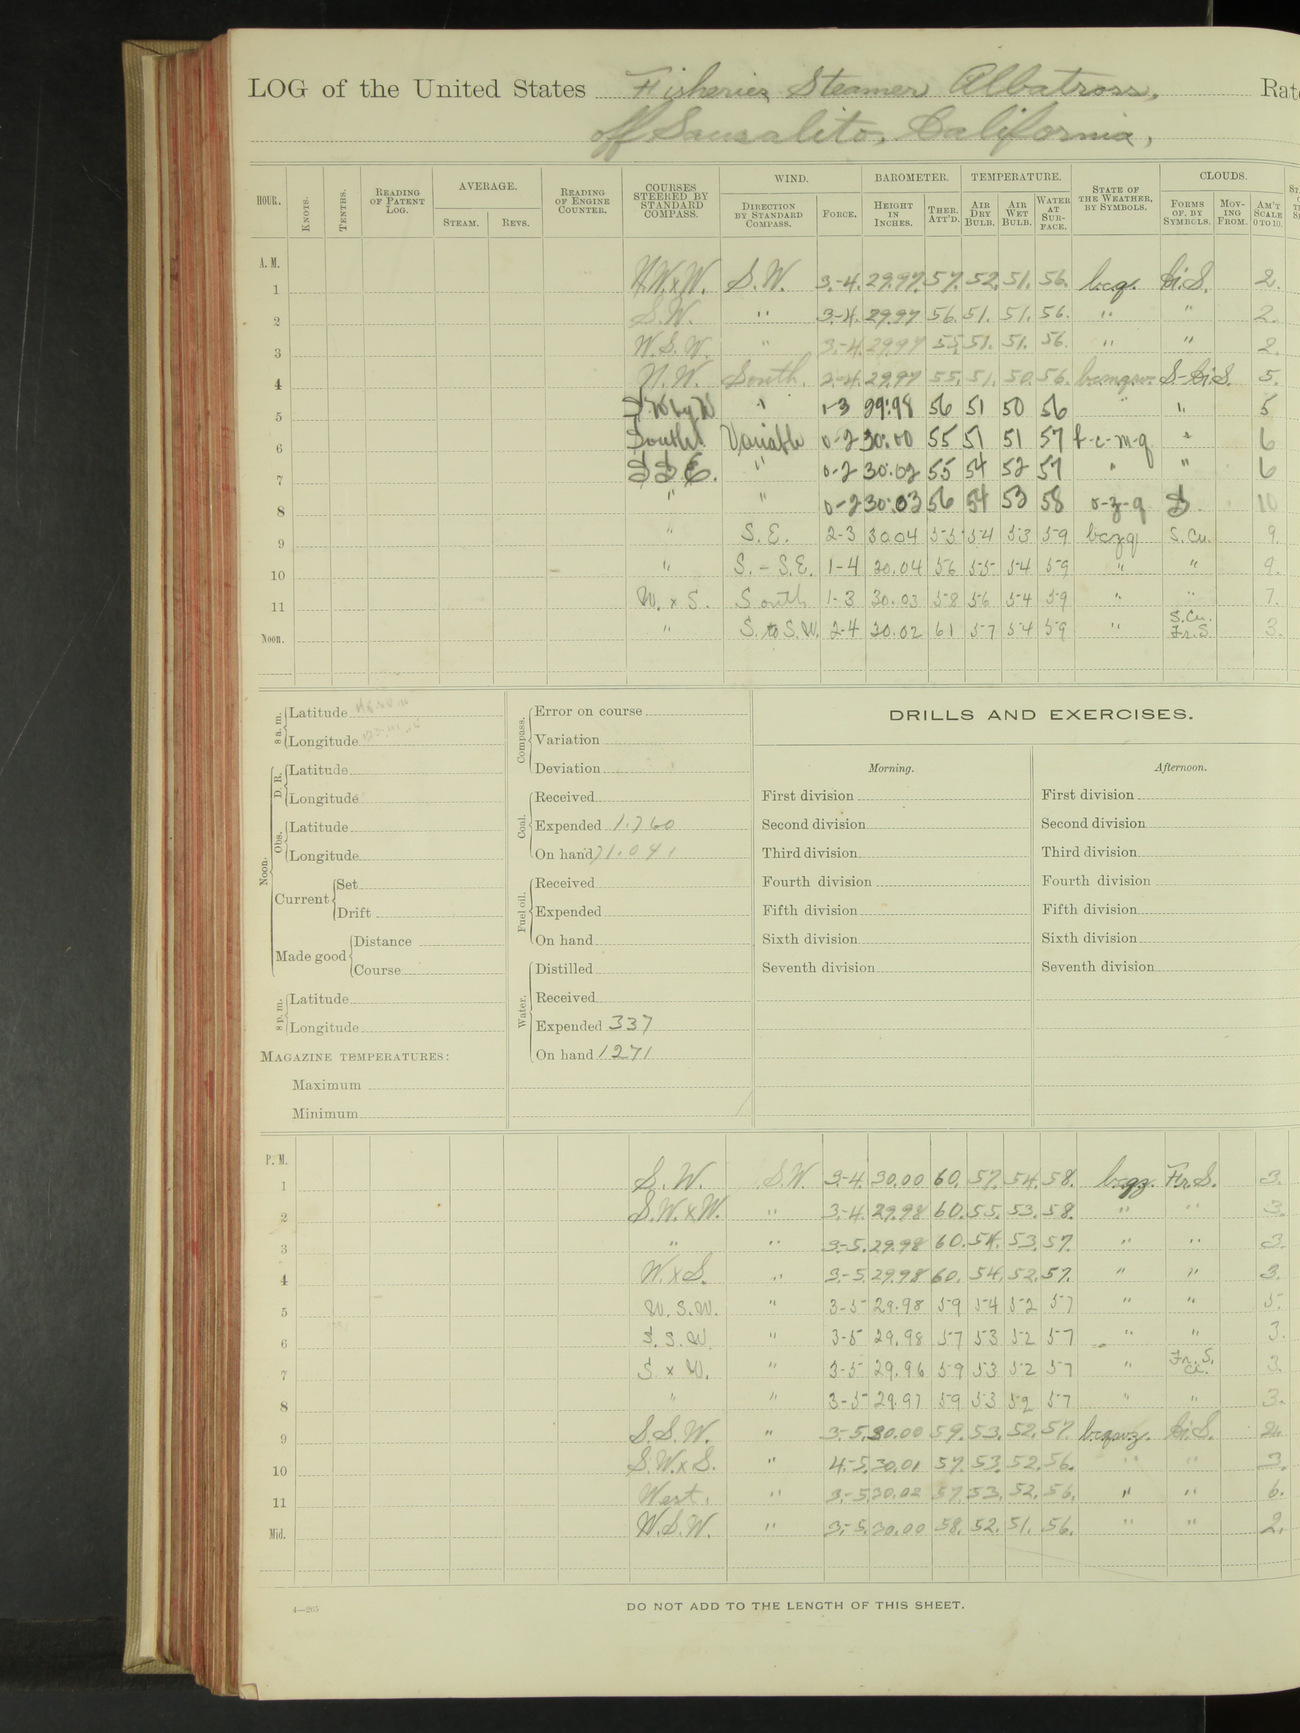 LOG of the United States Fisheries Steamer Albatross, Rate
off Sausalito, California,
HOUR. KNOTS. TENTHS. READING OF PATENT LOG. AVERAGE. STEAM. REVS. READING OF ENGINE COUNTER. COURSES STEERED BY STANDARD COMPASS. WIND. DIRECTION BY STANDARD COMPASS. FORCE. BAROMETER. HEIGHT IN INCHES. THER. ATT'D. TEMPERATURE. AIR DRY BULB. AIR WET BULB. WATER AT SURFACE. STATE OF THE WEATHER, BY SYMBOLS. CLOUDS. FORMS OF, BY SYMBOLS. MOVING FROM. AM'T SCALE 0 TO 10.
A. M.
1 N.W.xW. S.W. 3-4. 29.97. 57. 52. 51. 56. bcq. Ci.S. 2.
2 S.W. " 3-4. 29.97 56. 51. 51. 56. " " 2.
3 W.S.W. " 3-4. 29.97 55. 51. 51. 56. " " 2.
4 N.W. South. 2-4. 29.97 55. 51. 50. 56. S-Ci.S. 5.
5 " 1-3 29.98 56 51 50 56 " " 5
6 South Variable 0-2 30.00 55 51 51 57 f-c-m-q " 6
7 SSE. " 0-2 30.02 55 54 52 57 " " 6
8 " " 0-2 30.03 56 54 53 58 o-z-q S. 10
9 " S.E. 2-3 30.04 55 54 53 59 bczq S.Cu. 9.
10 " S.-S.E. 1-4 30.04 56 55 54 59 " " 9.
11 W. x S. South 1-3 30.03 58 56 54 59 " " 7.
Noon. " S. to S.W. 2-4 30.02 61 57 54 59 " S.Cu. Fr.S. 3.
8 a. m. Latitude
Longitude
Noon. D. R. Latitude
Longitude
Obs. Latitude
Longitude
Current Set
Drift
Made good Distance
Course
8 p. m. Latitude
Longitude
MAGAZINE TEMPERATURES:
Maximum
Minimum
Compass. Error on course
Variation
Deviation
Coal. Received
Expended 1.760
On hand 71.041
Fuel oil. Received
Expended
On hand
Water. Distilled
Received
Expended 337
On hand 1271
DRILLS AND EXERCISES.
Morning. Afternoon.
First division First division
Second division Second division
Third division Third division
Fourth division Fourth division
Fifth division Fifth division
Sixth division Sixth division
Seventh division Seventh division
P. M.
1 S.W. S.W. 3-4. 30.00 60. 57. 54. 58. bcqz. Fr.S. 3.
2 S.W.xW. " 3-4. 29.98 60. 55. 53. 58. " " 3.
3 " " 3-5. 29.98 60. 54. 53. 57. " " 3.
4 W.xS. " 3-5. 29.98 60. 54. 52. 57. " " 3.
5 W.S.W. " 3-5 29.98 59 54 52 57 " " 5.
6 S.S.W. " 3-5 29.98 57 53 52 57 " " 3.
7 S x W. " 3-5 29.96 59 53 52 57 " Fr.S. Ci. 3.
8 " " 3-5 29.97 59 53 52 57 " " 3.
9 S.S.W. " 3-5. 30.00 59. 53. 52. 57. Ci.S.
10 S.W.xS. " 4-5. 30.01 57. 53. 52. 56. " " 3.
11 West. " 3-5. 30.02 57. 53. 52. 56. " " 6.
Mid. W.S.W. " 3-5. 30.00 58. 52. 51. 56. " " 2.
4—265
DO NOT ADD TO THE LENGTH OF THIS SHEET.